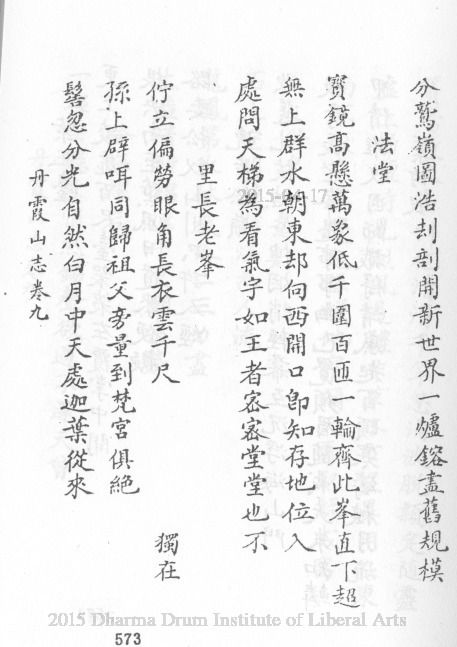 分鷲嶺圖浩刦剖開新世界一爐鎔盡舊規模
法堂
寳鏡高懸萬象低千圍百匝一輪齊此峯直下超
無上群水朝東却向西開口卽知存地位入
處問天梯為看氣字如王者宻宻堂堂也不
里長老峯
佇立偏勞眼角長衣雲千尺 獨在
孫上辟咡同歸祖父旁量到梵宮俱絕
髻忽分光自然白月中天處迦葉從來
丹霞山志卷九
573
2015-04-17
2015 Dharma Drum Institute of Liberal Arts